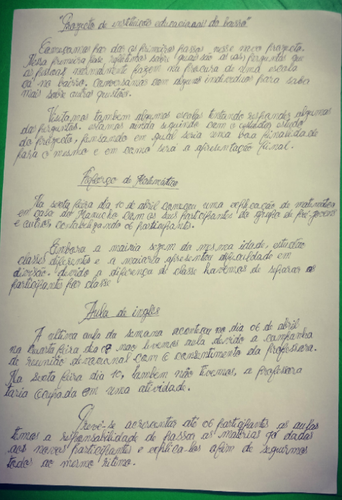 "Projecto de instituições educacionais do bairro"
Começamos por dar os primeiros passos nesse novo projecto.
Nossa primeira fase refletimos sobre quais são as perguntas que
as pessoas normalmente fazem na procura de uma escola
cá no bairro, conversamos com alguns indivíduos para saber
mais sobre outras questões.
Visitamos também algumas escolas tentando responder algumas
das perguntas. estamos ainda seguindo com o estudo
do projecto, pensando em qual seria uma boa
para o mesmo e em como será a apresentação final.
Reforço de Matemática
Na sexta feira dia 10 de abril começou uma explicação de matemática
em casa do com os participantes do grupo de
e outros participantes.
Embora a maioria sejam da mesma idade, estudão
classes diferentes e a maioria apresentou dificuldade em
divisão. devido a diferença de classe havemos de separar os
participantes por classe
Aula de inglês
A última aula da semana aconteceu no dia 06 de abril
na quarta feira dia 08 não tivemos aula devido a campanha
de reunião com o consentimento da professora.
Na sexta feira dia 10, também não tivemos, a professora
taria ocupada em uma atividade.
Prevê-se acrescentar até 06 participantes as aulas
temos a responsabilidade de passar as matérias já dadas
aos novos participantes e explica-los afim de seguirmos
todos ao mesmo ritmo.